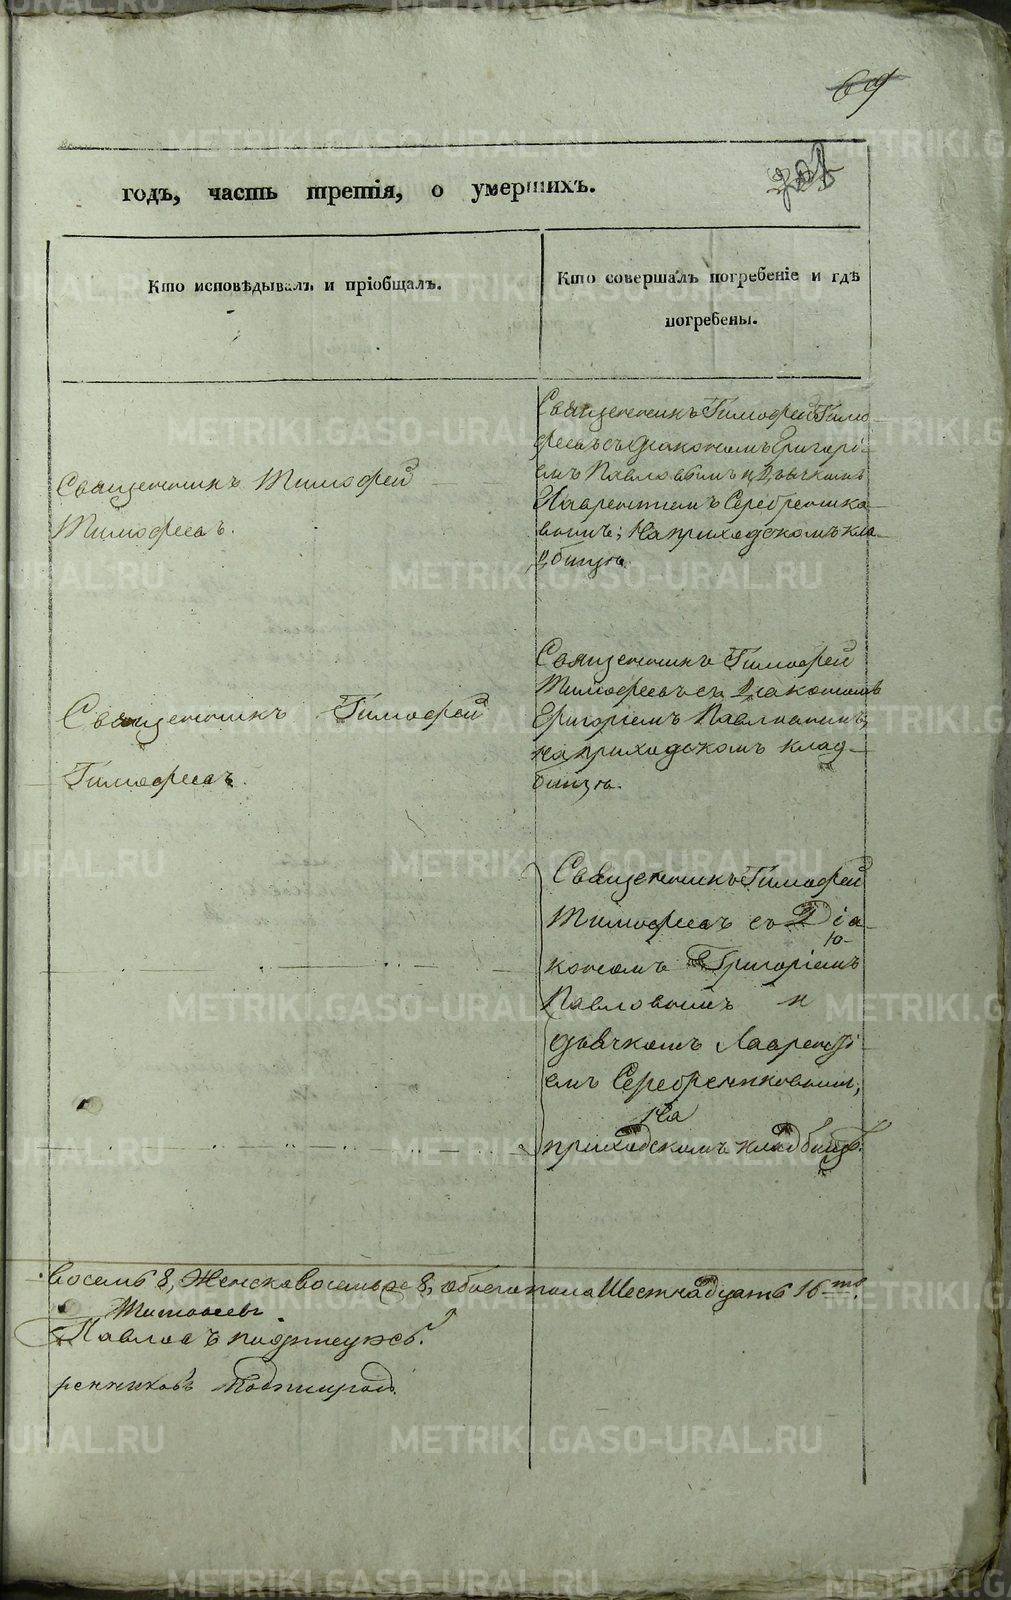 69
годъ, часть третія, о умершихъ.
Кто исповѣдывалъ и пріобщалъ.
Кто совершалъ погребеніе и гдѣ
погребены.
Священникъ Тимофей
Тимофеевъ.
Священникъ Тимофей Тимо-
феевъ съ діакономъ Григорі-
емъ Павловымъ и Дьячкомъ
Лаврентіемъ Серебренико-
вымъ; На приходскомъ кла-
дбищѣ.
Священникъ Тимофей
Тимофеевъ.
Священникъ Тимофей
Тимофеевъ съ Діакономъ
Григоріемъ Павловымъ,
на приходскомъ клад-
бищѣ.
Священникъ Тимофей
Тимофеевъ съ Діа-
кономъ Григоріемъ
Павловымъ и
дьячкомъ Лаврентьі-
емъ Серебрениковымъ,
На
приходскомъ кладбищѣ.
восемь 8, Женска восемь 8, обоего пола Шестнадцать 16ть.
Тимофеевъ
Павловъ подписуюсь.
ренниковъ
METRIKI.GASO-URAL.RU